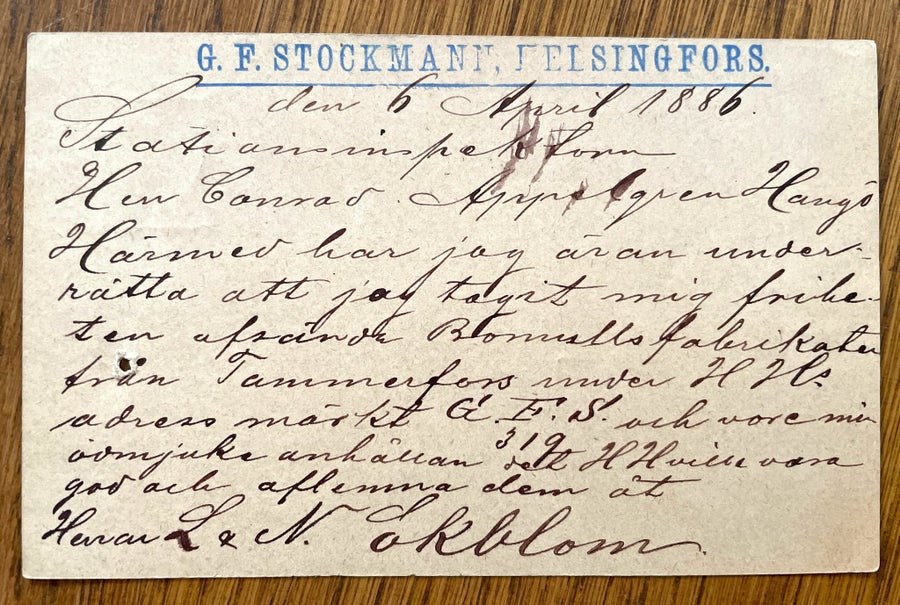 G. F. STOCKMANN, HELSINGFORS.
den 6 April 1886.
Stationsinspektorn
Herr Conrad Appelgren Hangö
Härmed har jag äran under-
rätta att jag tagit mig frihe-
ten afsända Bomullsfabrikater
från Tammerfors under H Hs
adress märkt G. F. S. och vore min
319
ödmjuke anhållan det H H ville vara
god och aflemna dem åt
Herrar L & N. Ekblom